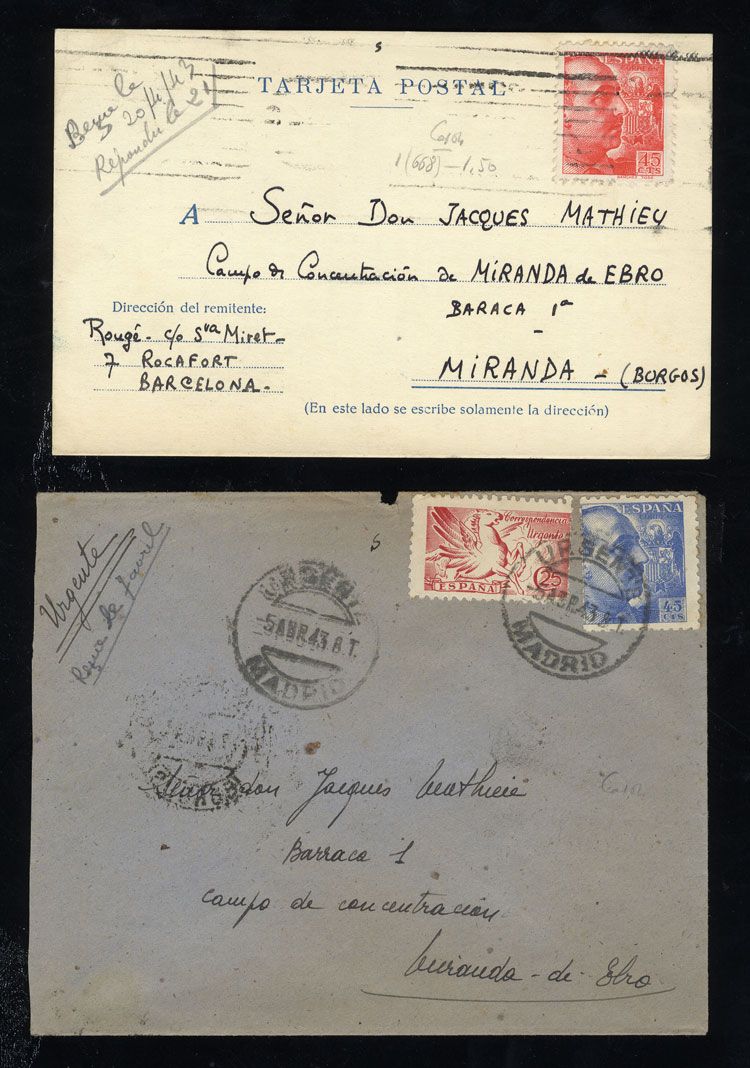 s
TARJETA POSTAL
Reçue le
20/4/43
Répondu le 21
ESPAÑA
CORREOS
45
CTS
SANCHEZ TODA
1(668)-1,50
A Señor Don JACQUES MATHIEY
Campo de Concentración de MiRANDA de EBRO
BARACA 1ª
Dirección del remitente:
Rougé - c/o Sra Miret -
7 ROCAFORT
BARCELONA -
MiRANDA - (BURGOS)
(En este lado se escribe solamente la dirección)
Urgente
Reçue le
s
Correspondencia
Urgente
ESPAÑA
25
ESPAÑA
45
CTS
URGENTE
5 ABR.43.8.T.
MADRID
URGENTE
5 ABR.43.8.T.
MADRID
Señor don Jacques Mathieie
Barraca 1
campo de concentración
Miranda-de-Ebro